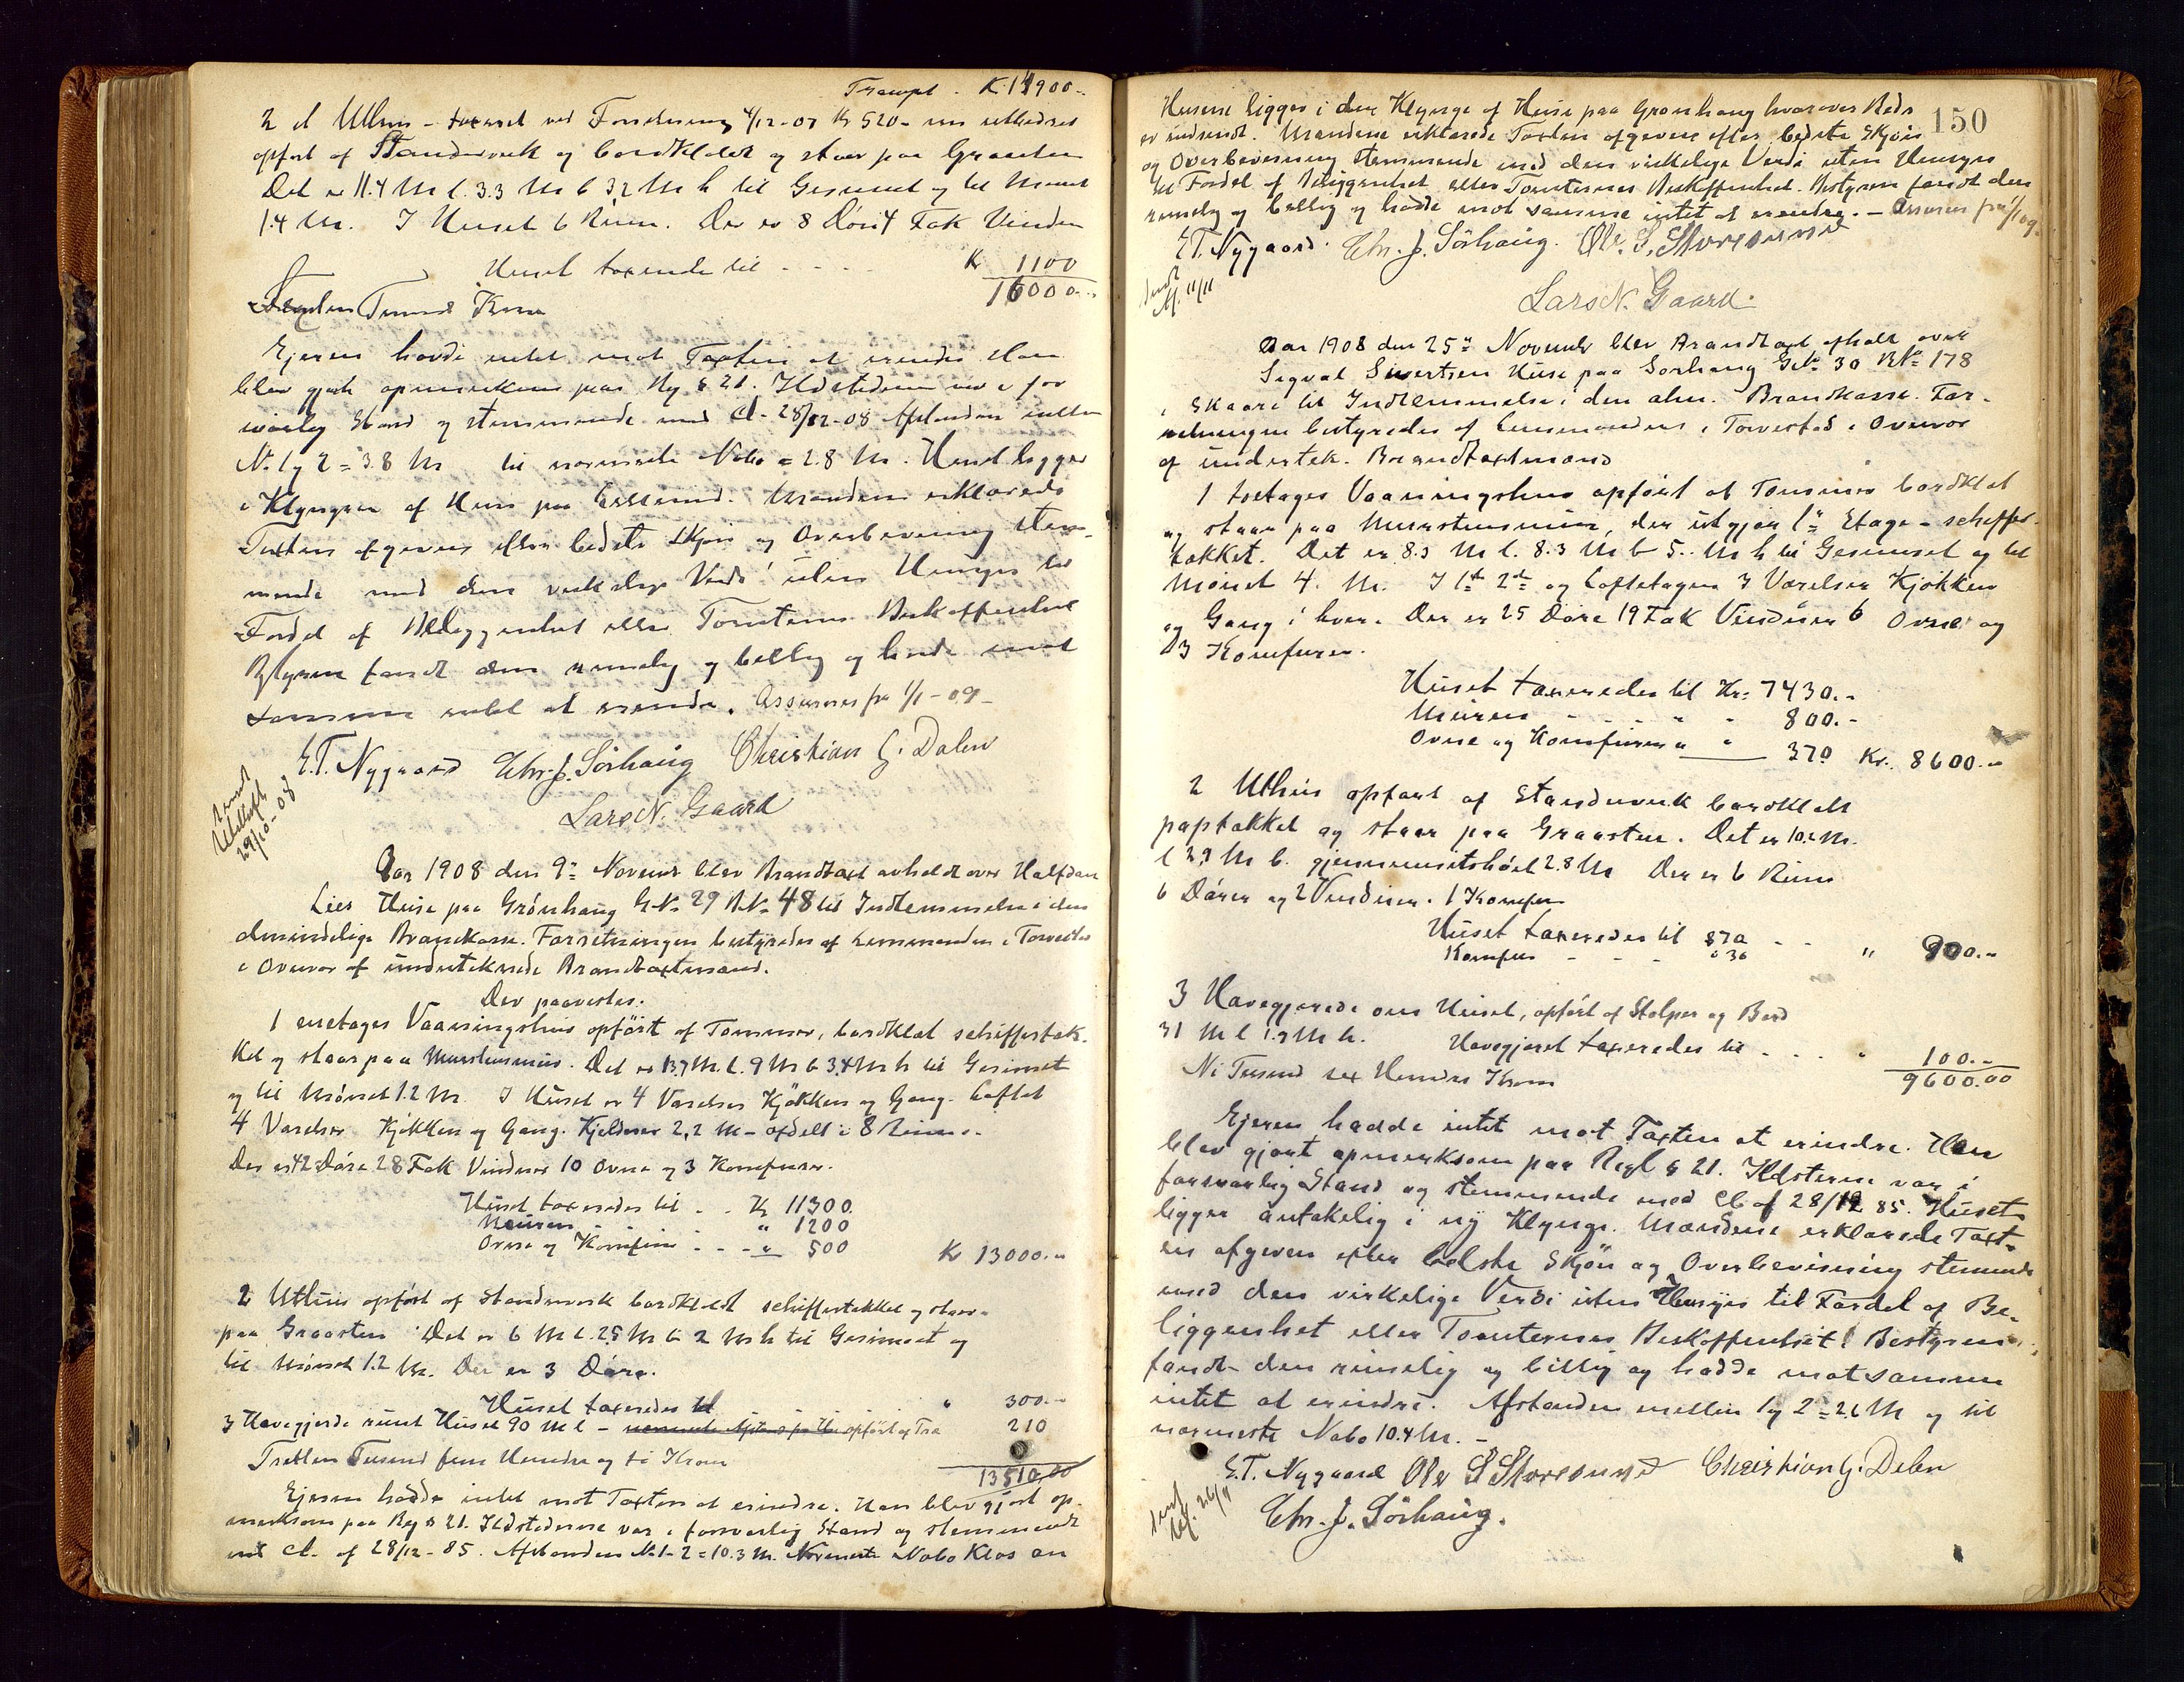 Transpt. K. 14900.-
2 d Uthus - taxeret ved Forretning 4/12-07 Kr 520 - nu utbedret
opført af Standerverk og bordklædt og staar paa Graasten
Det er 11.4 M l. 3.3 M b 3.2 M h til Gesimset og til Mønet
1.4 M. I Huset 6 Rum. Der er 8 Dør 4 Fak Vinduer
Huset taxeredes til . . . . Kr 1100
16000.-
Sexten Tusend Kroner
Ejeren havde intet mot Taxten at erindre. Han
blev gjort opmerksom paa Rg § 21. Ildstederne var i for
svarlig Stand og stemmende med Cl. 28/12-08 Afstanden mellem
No 1 og 2 = 3.8 M til nærmeste Nabo = 2.8 M. Huset ligger
i Klyngen af Huse paa . Mændene erklærede
Taxten afgiven efter bedste Skjøn og Overbevisning stem-
mende med den virkelige Verdi uten Hensyn til
Fordel af Beliggenhet eller Tomternes Beskaffenhet
Bestyren fandt den rimelig og billig og havde mot
samme intet at erindre. Assureres fra 1/1-09-
E.T. Nygaard Chr. J. Sørhaug Christian G. Dalen
Lars N. Gaard
sendt
Utskrift
29/10-08
Aar 1908 den 9de Novembr blev Brandtaxt avholdt over Halfdan
Lies Huse paa Grønhaug G.No 29 B.No 48 til Indlemmelse i den
almindelige Brandkasse. Forretningen bestyredes af Lensmanden i Torvestad
i Overvær af undertegnede Brandtaxtmænd.
Der paavistes:
1 enetages Vaaningshus opført af Tømmer, bordklæt schiffertæk-
ket og staar paa Murstensmur. Det er 13.7 M. l. 9 M b 3.4 M h til Gesimset
og til Mønet 1.2 M. I Huset er 4 Værelser Kjøkken og Gang. Loftet
4 Værelser Kjøkken og Gang. Kjelderen 2,2 M - afdelt i 8 Rum.
Der er 42 Døre 28 Fak Vinduer 10 Ovne og 3 Komfurer.
Huset taxeredes til . . Kr 11300.
Muren - - - " 1200
Ovne og Komfurer . . - " 500 Kr 13000.-
2 Uthus opført af Standerverk bordklædt schiffertækket og staar
paa Graasten Det er 6 M l. 2.5 M b 2 M h til Gesimset og
til Mønet 1.2 M. Der er 3 Døre.
Huset taxeredes til " 300.-
3 Havegjerde rundt Huset 90 M l - opført af Træ 210
Tretten Tusend fem Hundre og ti Kroner
13510,00
Ejeren hadde intet mot Taxten at erindre. Han blev gjort op-
merksom paa Reg § 21. Ildstederne var i forsvarlig Stand og stemmende
med Cl. af 28/12-85. Afstanden No 1-2 = 10.3 M. Nærmeste Nabo Klos an
150
Husene ligger i den Klynge af Huse paa Grønhaug hvorover Rids
er indsendt. Mændene erklærede Taxten afgiven efter bedste Skjøn
og Overbevisning stemmende med den virkelige Verdi uten Hensyn
til Fordel af Beliggenhet eller Tomternes Beskaffenhet. Bestyren fandt den
rimelig og billig og hadde mot samme intet at erindre. - Assureres fra 1/1 09.
E.T. Nygaard. Chr. J. Sørhaug. Ole S. Storesund
sendt
Af. 11/11
Lars N. Gaard.
Aar 1908 den 25de Novembr blev Brandtaxt afholdt over
Sigval Sivertsen Huse paa Sørhaug G.No 30 B.No 178
i Skaare til Indlemmelse i den alm. Brandkasse. For-
retningen bestyredes af Lensmanden i Torvestad i Overvær
af undertek. Brandtaxtmænd
1 toetages Vaaningshus opført af Tømmer bordklæt
og staar paa Murstensmur, der utgjør 1ste Etage - schiffer-
tækket. Det er 8.5 M l. 8.3 M b 5.. M h til Gesimset og til
Mønet 4. M. I 1ste 2den og Loftetagen 3 Værelser Kjøkken
og Gang i hver. Der er 25 Døre 19 Fak Vinduer 6 Ovne og
3 Komfurer.
Huset taxeredes til Kr. 7430.-
Muren - - - " - 800.-
Ovne og Komfurer " " 370 Kr. 8600.-
2 Uthus opført af Standerverk bordklædt
paptækket og staar paa Graasten. Det er 10.2 M.
l 2.9 M b. gjennemsnitshøit 2.8 M Der er 6 Rum
6 Dører og 2 Vinduer. 1 Komfur
Huset taxeredes til 870 - -
Komfur - - - " 30 " 900.-
3 Havegjerde om Huset, opført af Stolper og Bord
31 M l 1.3 M h. Havegjeret taxeredes til . . . " 100.-
Ni Tusend sex Hundre Kroner 9600.00
Ejeren hadde intet mot Taxten at erindre. Han
blev gjort opmerksom paa Regl § 21. Ildstederne var i
forsvarlig Stand og stemmende med Cl af 28/12 85. Huset
ligger antakelig i ny Klynge. Mændene erklærede Taxt-
en afgiven efter bedste Skjøn og Overbevisning stemmende
med den virkelige Verdi uten Hensyn til Fordel af Be-
liggenhet eller Tomternes Beskaffenhet. Bestyren
fandt den rimelig og billig og hadde mot samme
intet at erindre. Afstanden mellem 1 og 2 = 2.6 M og til
nærmeste Nabo 10.4 M. -
E.T. Nygaard Ole S Storesund Christian G. Dalen
sendt
Af. 26/11
Chr. J. Sørhaug.